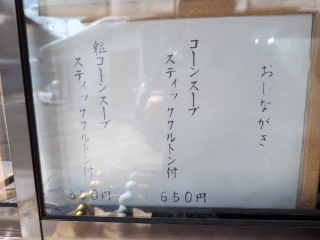 おしながき
コーンスープ
スティッククルトン付
650円
粒コーンスープ
スティッククルトン付